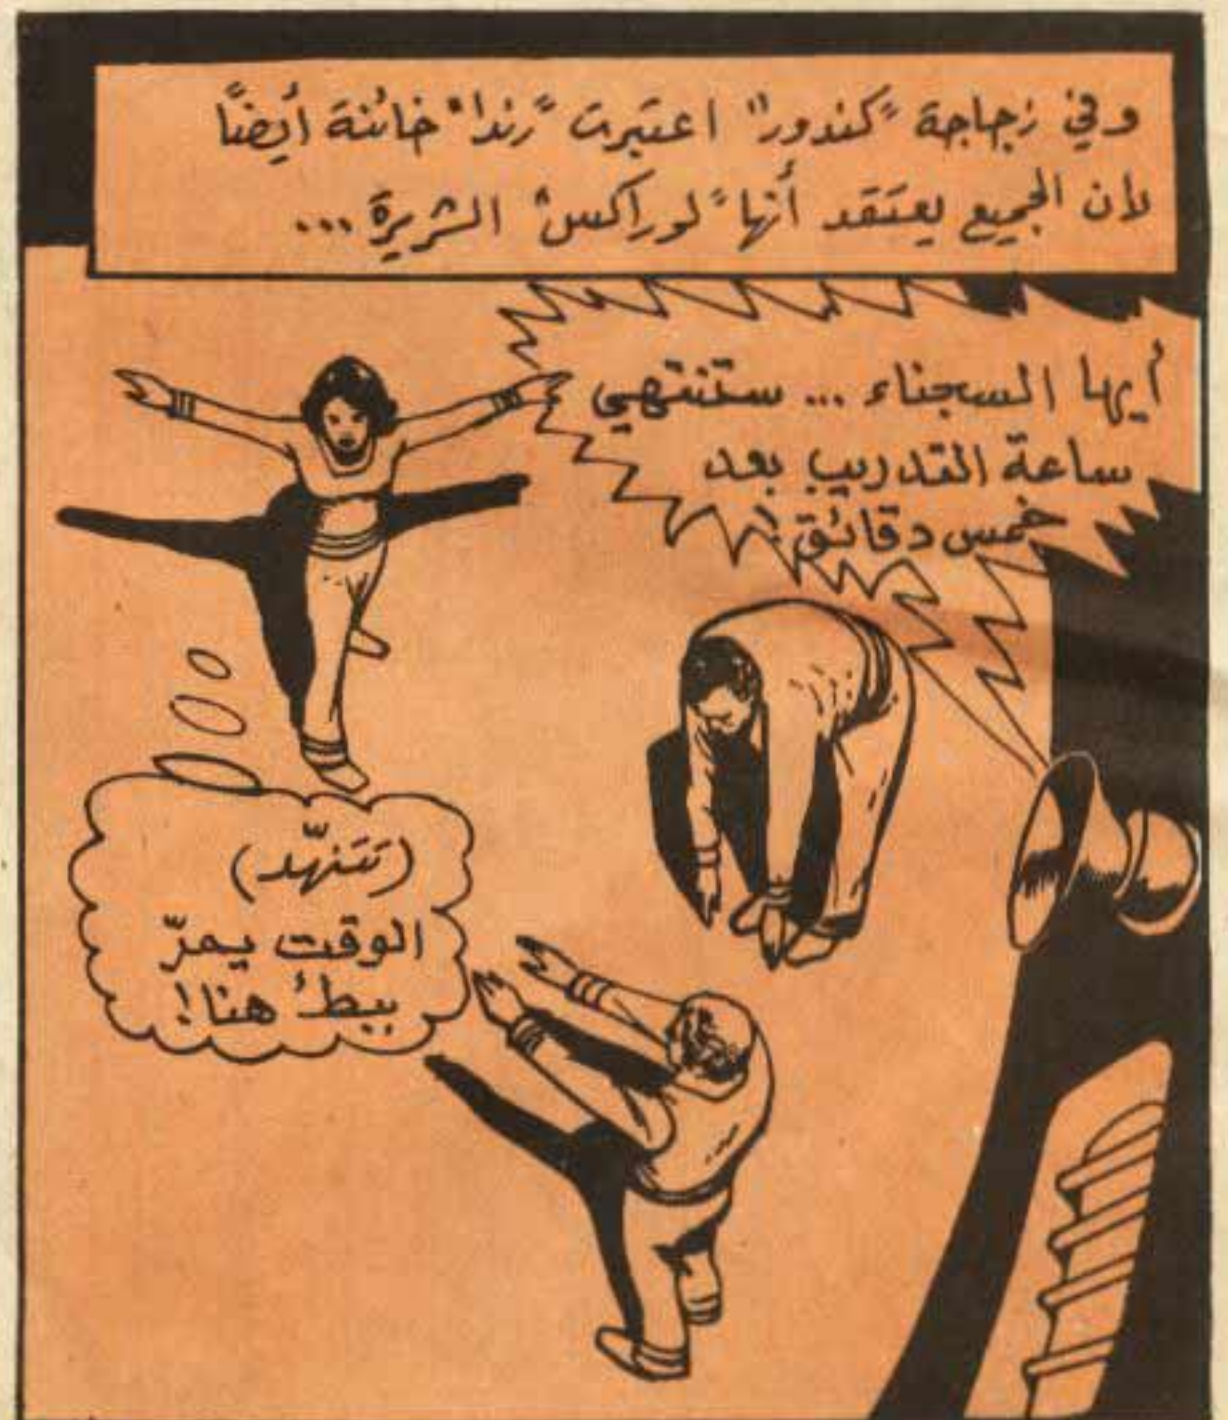 وفي زجاجة "كندور" اعتبرت "رندا" خائنة أيضاً
لأن الجميع يعتقد أنها "لوراكس" الشريرة...
أيها السجناء... ستنتهي
ساعة التدريب بعد
خمس دقائق!
(تتنهّد)
الوقت يمرّ
ببطئ هنا!